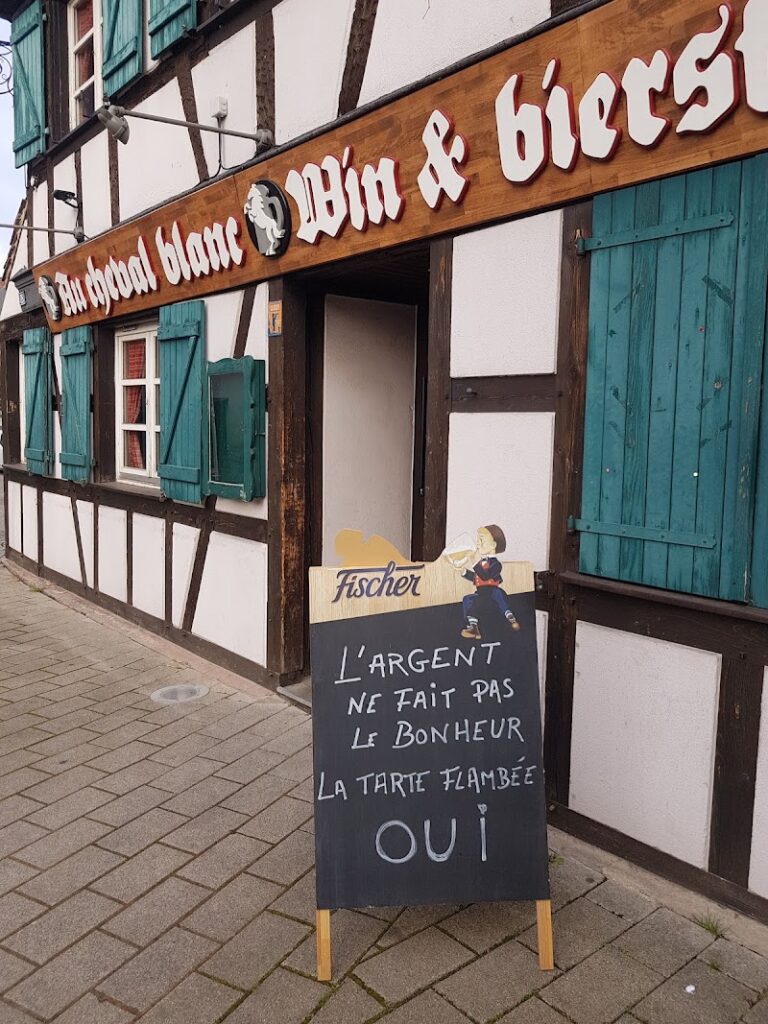 Au cheval blanc Win & bierst
Fischer
L'ARGENT
NE FAIT PAS
LE BONHEUR
LA TARTE FLAMBÉE
OUI